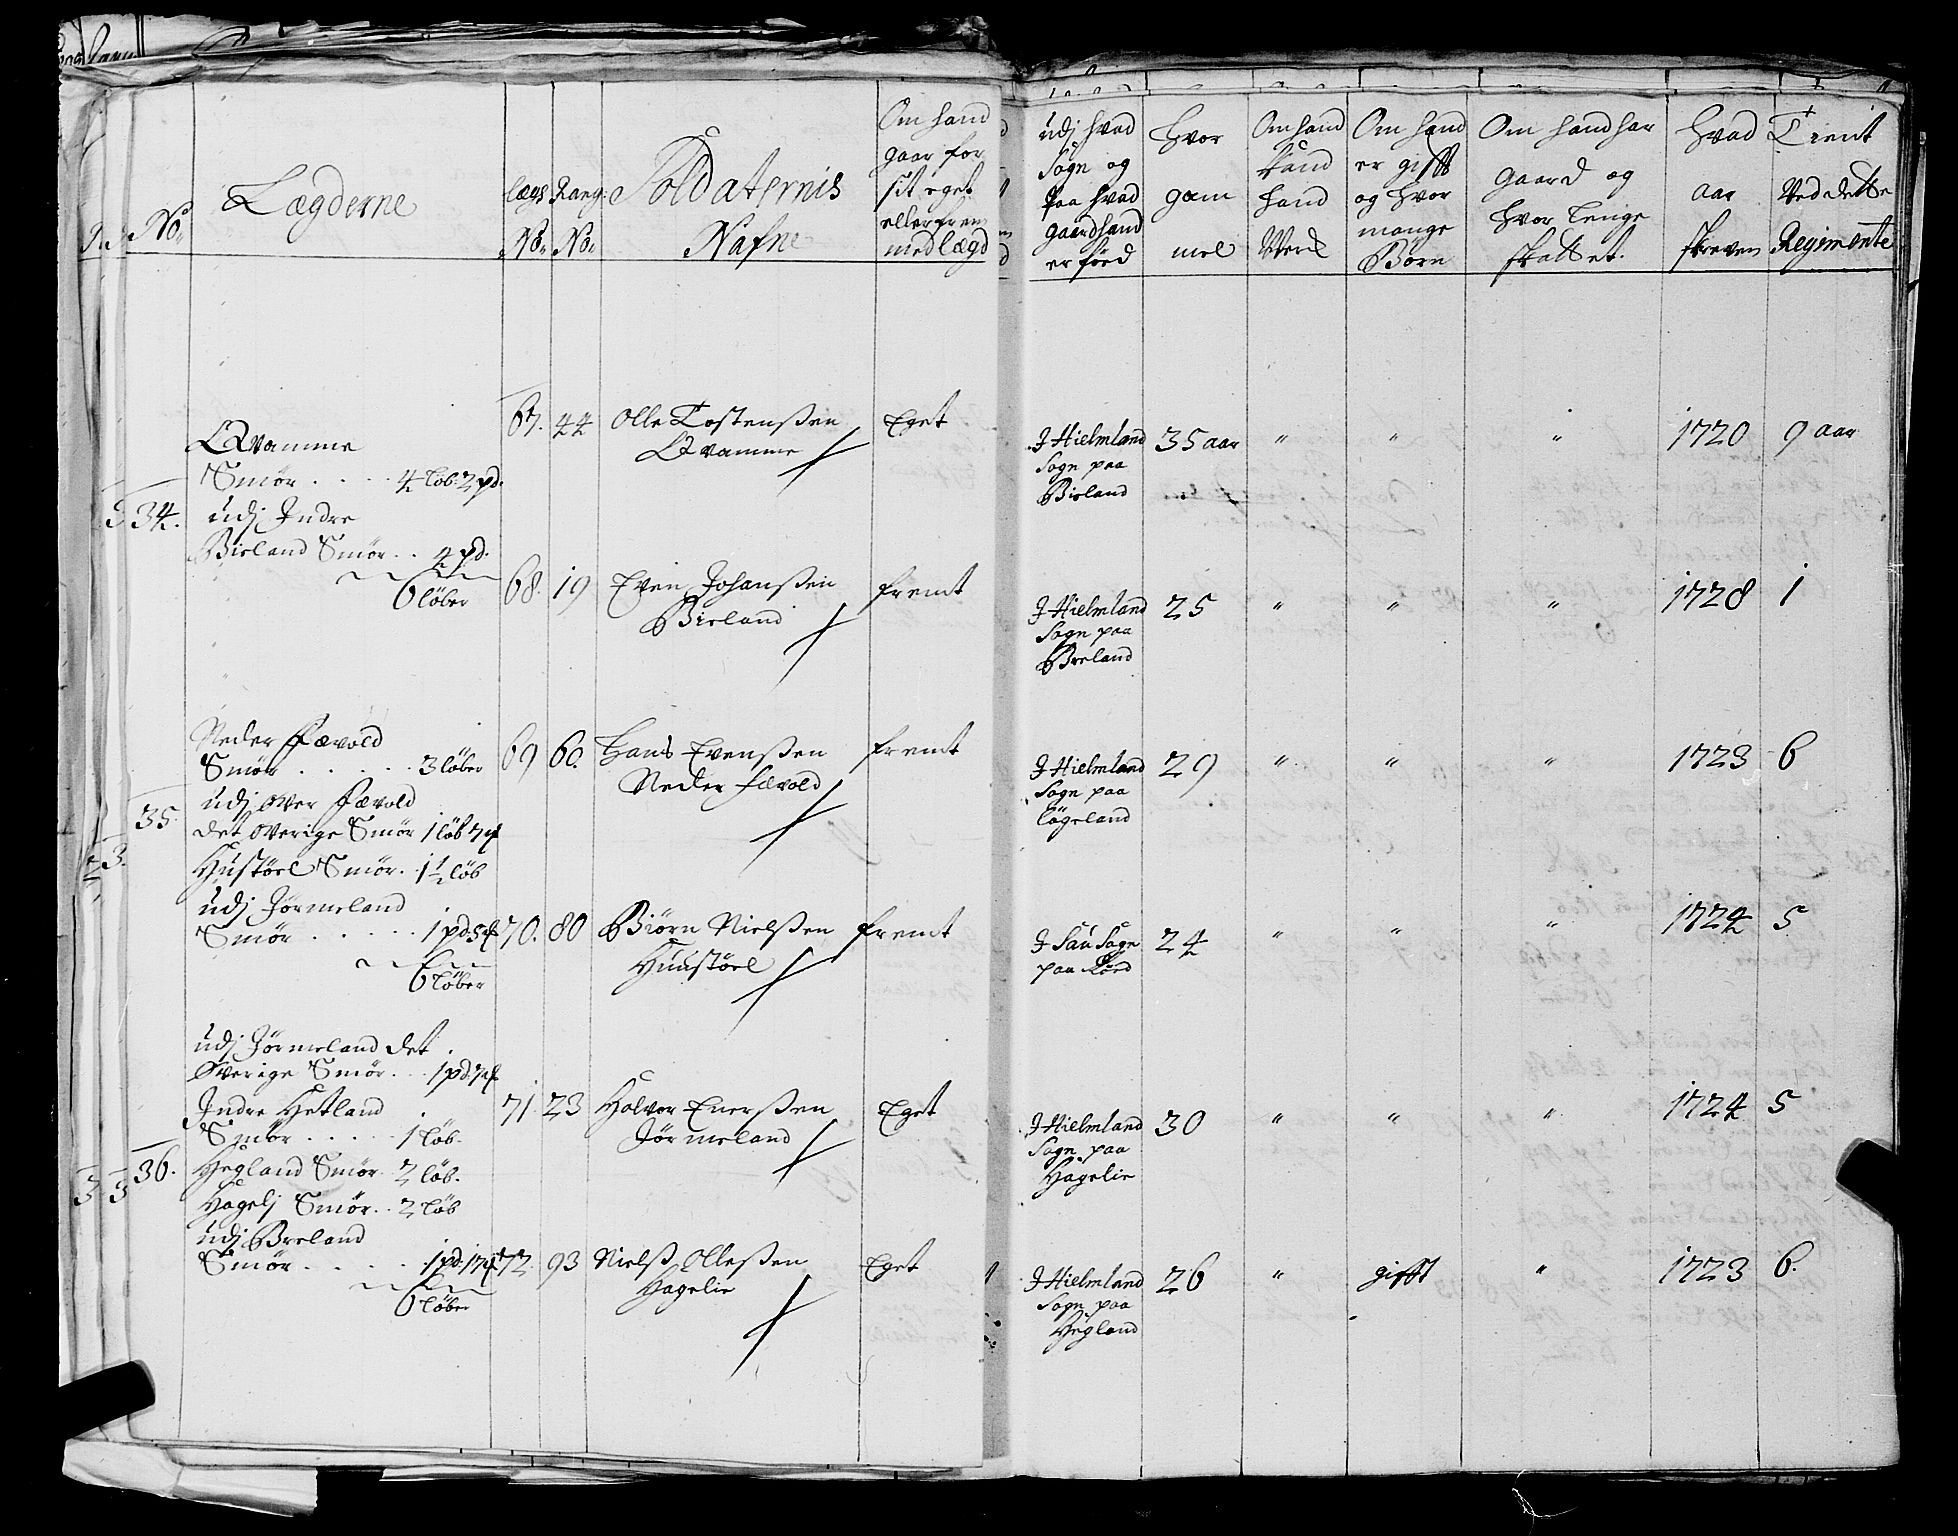 No.
Lægderne
Lægs No.
Rang: No.
Soldaternis Nafne
Om hand
gaar for
sit eget
eller frem
med lægd
udj hvad
Sogn og
paa hvad
gaard hand
er föed
Hvor
gam
mel
Om hand
kand
hand
Verk
Om hand
er gifft
og hvor
mange
Børn
Om hand har
gaard og
hvor lenge
skattet.
Hvad
aar
skreven
Tient
Ved dette
Regimente
34.
Qvamme
Smör . . . . 4 löb: 2 pd.
udj Indre
Birland Smör . . 4 pd.
6 löber
67. 44 Olle Tostenßen
Qvamme
Eget
J Hielmland
Sogn paa
Birland
35 aar " " " 1720 9 aar
68. 19 Even Johanßen
Birland
fremt
J Hielmland
Sogn paa
Breland
25 " " " 1728 1
35.
Neder Fævold
Smör . . . . . 3 löber
udj over Fævold
det overige Smör 1 löb
Hustöel Smör . 1 1/2 löb
udj Jörmeland
Smör . . . . . 1 pd
6 löber
69 60. Hans Evenßen
Neder Fævold
fremt
J Hielmland
Sogn paa
Lögeland
29 " " " 1723 6
70. 80 Biörn Nielßen
Huustöel
fremt
J Sau Sogn
paa
24 " " " 1724 5
36.
udj Jörmeland det
Overige Smör . . 1 pd
Indre Hetland
Smör . . . . . 1 löb.
Hegland Smör . 2 löb.
Hagelj Smör . . 2 löb
udj Breland
Smör . . . . . 1 pd
6 löber
71. 23 Halvor Enerßen
Jörmeland
Eget
J Hielmland
Sogn paa
Hagelie
30 " " " 1724 5
72. 93 Nielß Olleßen
Hagelie
Eget
J Hielmland
Sogn paa
Hegland
26 " gifft " 1723 6.